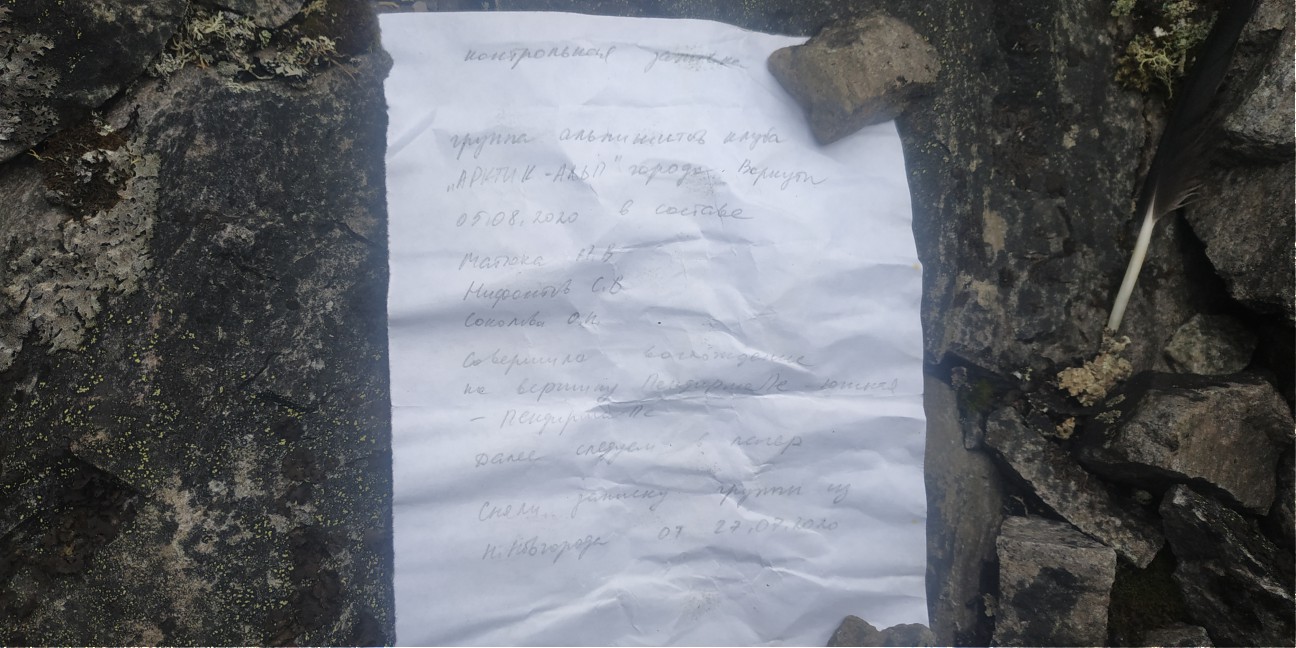 контрольная записка
группа альпинистов клуба
"АРКТИК-АЛЬП" города Воркуты
05.08.2020 в составе
Матюха А.В
Нифонтов С.В
Соколова О.Н.
Совершила восхождение
на вершину Пендирма Пе - южная
- Пендирма Пе
Далее следуем в лагерь
Сняли записку группы из
Н.Новгорода от 27.07.2020